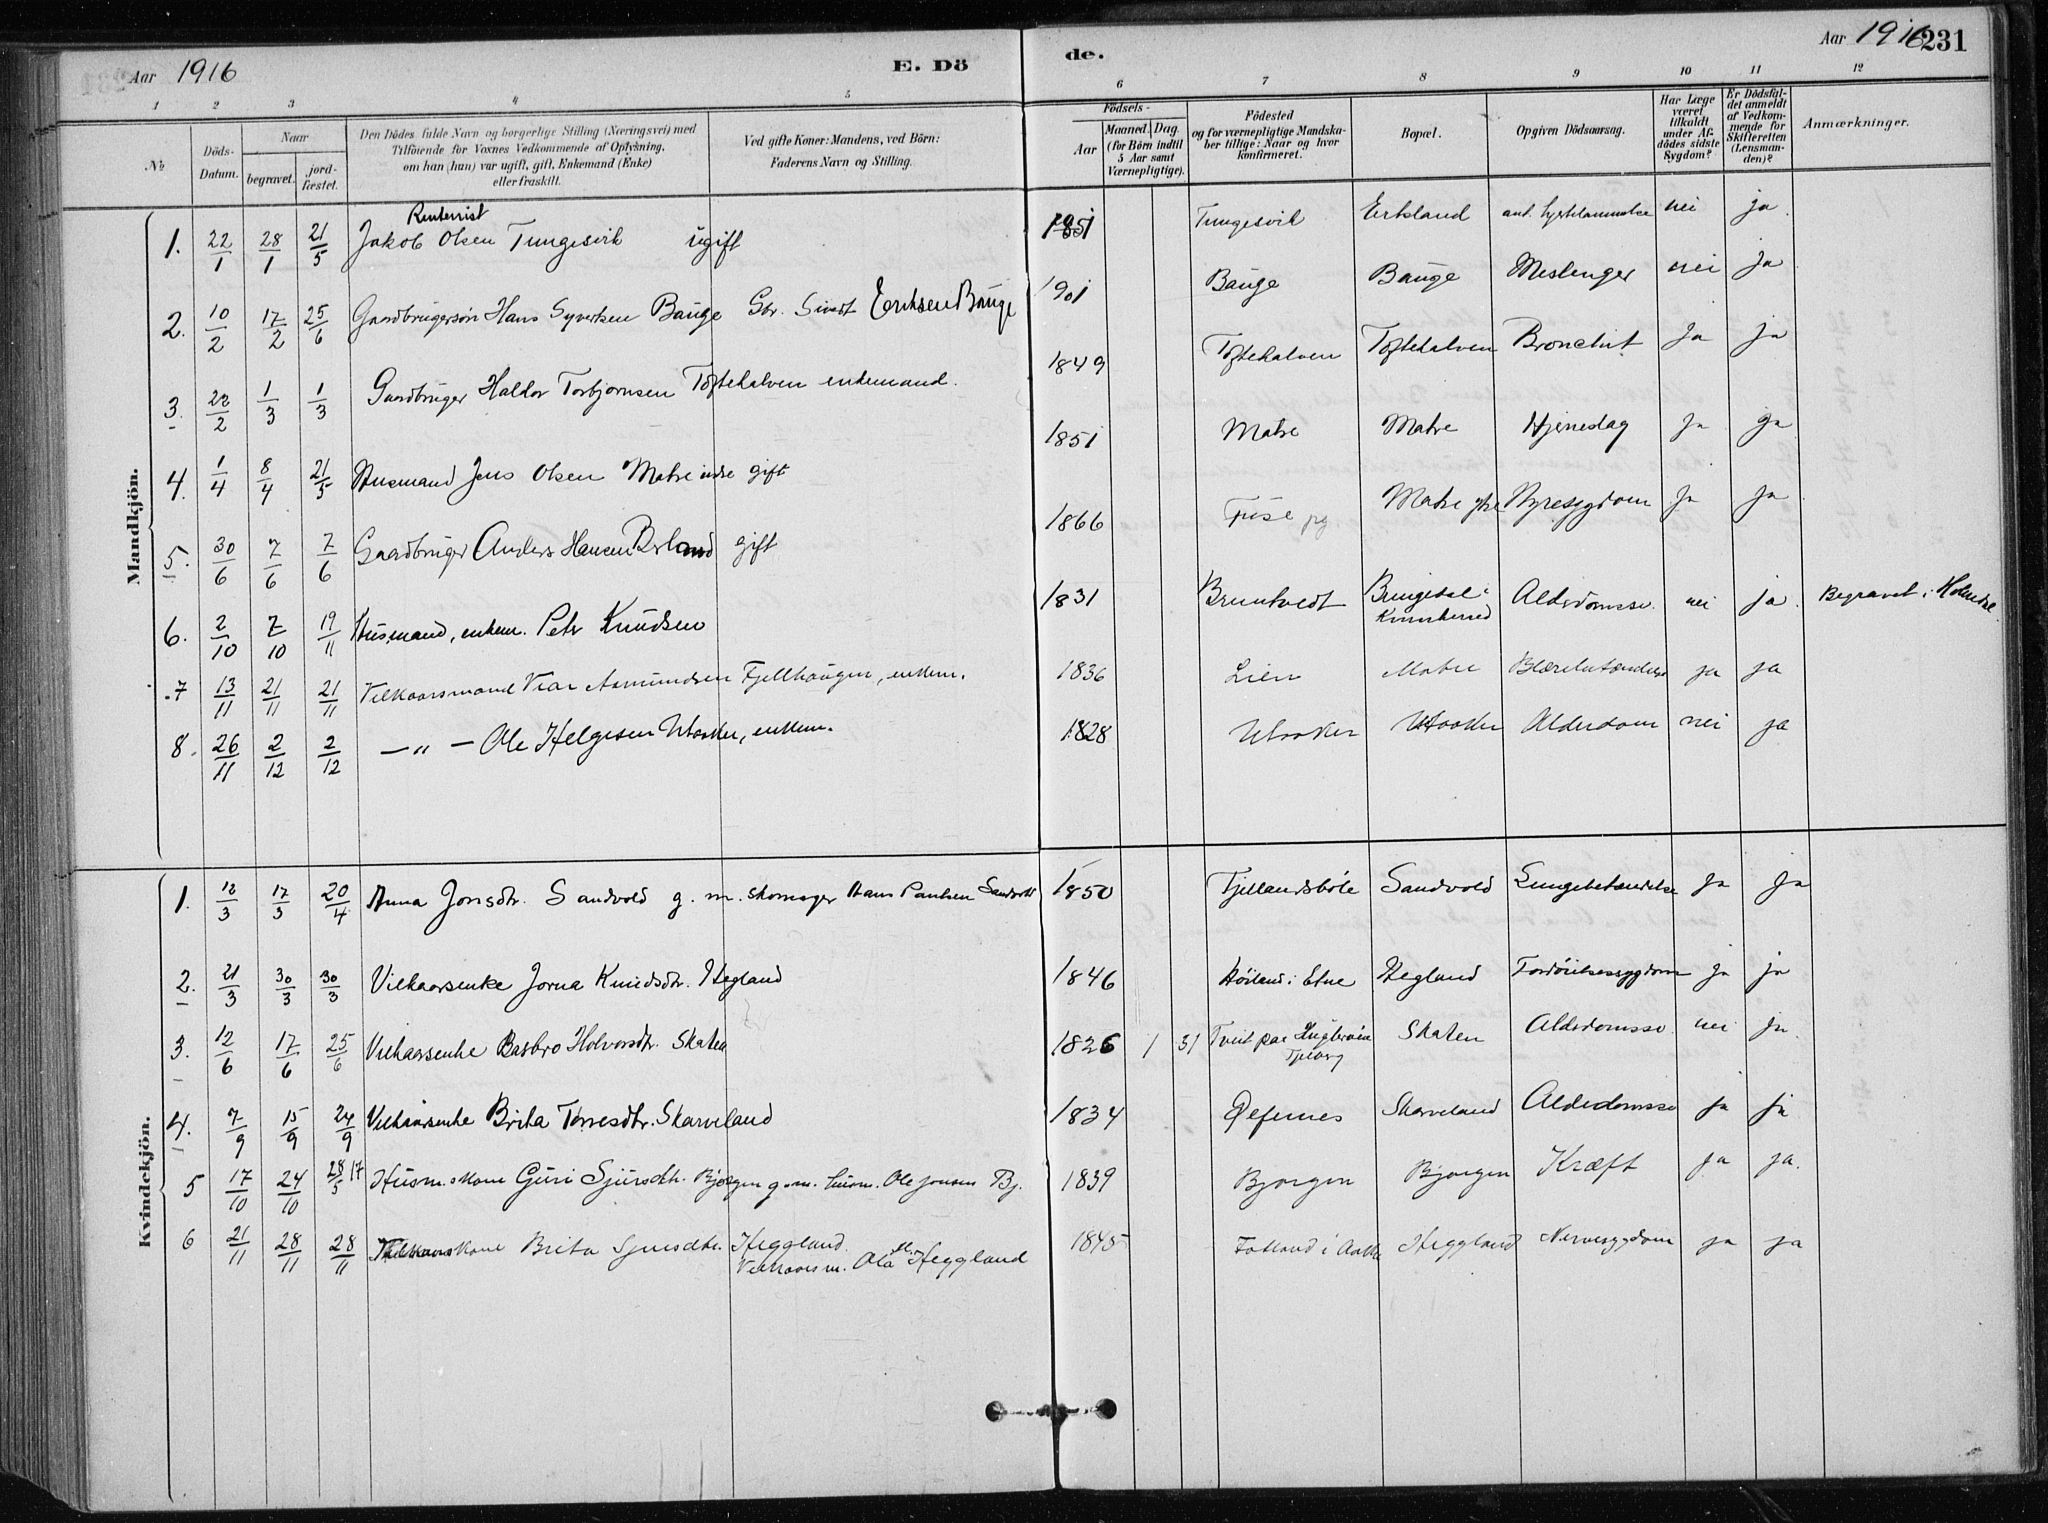 Aar 1916
E. Dö
de.
Aar 1916
231
1 2 3 4 5 6 7 8 9 10 11 12
№
Döds-Datum.
Naar
begravet.
jord-fæstet.
Den Dödes fulde Navn og borgerlige Stilling (Næringsvei) med
Tilföiende for Voxnes Vedkommende af Oplysning,
om han (han) var ugift, gift, Enkemand (Enke)
eller fraskilt.
Ved gifte Koner: Mandens, ved Börn:
Faderens Navn og Stilling.
Födsels-
Aar
Maaned. Dag.
(for Börn indtil
5 Aar samt
Værnepligtige).
Födested
og for værnepligtige Mandska-
ber tillige: Naar og hvor
konfirmeret.
Bopæl.
Opgiven Dödsaarsag.
Har Læge
været
tilkaldt
under Af-
dödes sidste
Sygdom?
Er Dödsfal-
det anmeldt
af Vedkom-
mende for
Skifteretten
(Lensman-
den)?
Anmærkninger.
Mandkjön.
1. 22/1 28/1 21/5 Renterist Jakob Olsen Tungesvik ugift 1851 Tungesvik Eikland nei ja
2. 10/2 17/2 25/6 Gaardbrugersøn Hans Syvertsen Bauge Gbr. Sivert Eriksen Bauge 1901 Bauge Bauge Meslenger nei ja
3. 22/2 1/3 1/3 Gaardbruger Haldor Torbjørnsen Toftehalven enkemand. 1849 Toftehalven Toftehalven Bronchit ja ja
4. 1/4 8/4 21/5 Husmand Jens Olsen Matre indre gift 1851 Matre Matre Hjerneslag ja ja
5. 30/6 7/6 7/6 Gaardbruger Anders Hansen gift 1866 Matre ytre Nyresygdom ja ja
6. 2/10 7/10 19/11 Husmand, enkem. Petr Knudsen 1831 Bruntvedt Bringedal i Kvinherred Alderdomssv. nei ja Begravet i Holmedal
7 13/11 21/11 21/11 Vilkaarsmand Viar Aamundsen Fjellhaugen, enkem. 1836 Lien Matre Blærebetændelse ja ja
8. 26/11 2/12 2/12 — " — Ole Helgesen Utaaker, enkem. 1828 Utaaker Utaaker Alderdom nei ja
Kvindekjön.
1. 12/3 17/3 20/4 Anna Jonsdtr. Sandvold g. m. skomager Hans Paulsen Sandvold 1850 Fjellandsbøle Sandvold Lungebetændelse ja ja
2. 21/3 30/3 30/3 Vilkaarsenke Jorna Knudsdtr. Hegland 1846 Høiland i Etne Hegland Fordøielsessygdom ja ja
3. 12/6 17/6 25/6 Vilkaarsenke Barbro Holversdtr. Skaten 1826 1 31 Tveit paa Skaten Alderdomssv. nei ja
4. 7/9 15/9 24/9 Vilkaarsenke Brita Tørresdtr. Skarveland 1834 Øfernes Skarveland Alderdomssv ja ja
5 17/10 24/10 28/5 17 Husm. kone Guri Sjursdtr. Bjørgen g. m. husm. Ole Jonsen Bj. 1839 Bjørgen Bjørgen Kræft ja ja.
6 21/11 28/11 28/11 Vilkaarskone Brita Sjursdtr. Heggland. Vilkaarsm. Ola Heggland 1845 Fatland i Aakre Heggland Nervesygdom ja ja